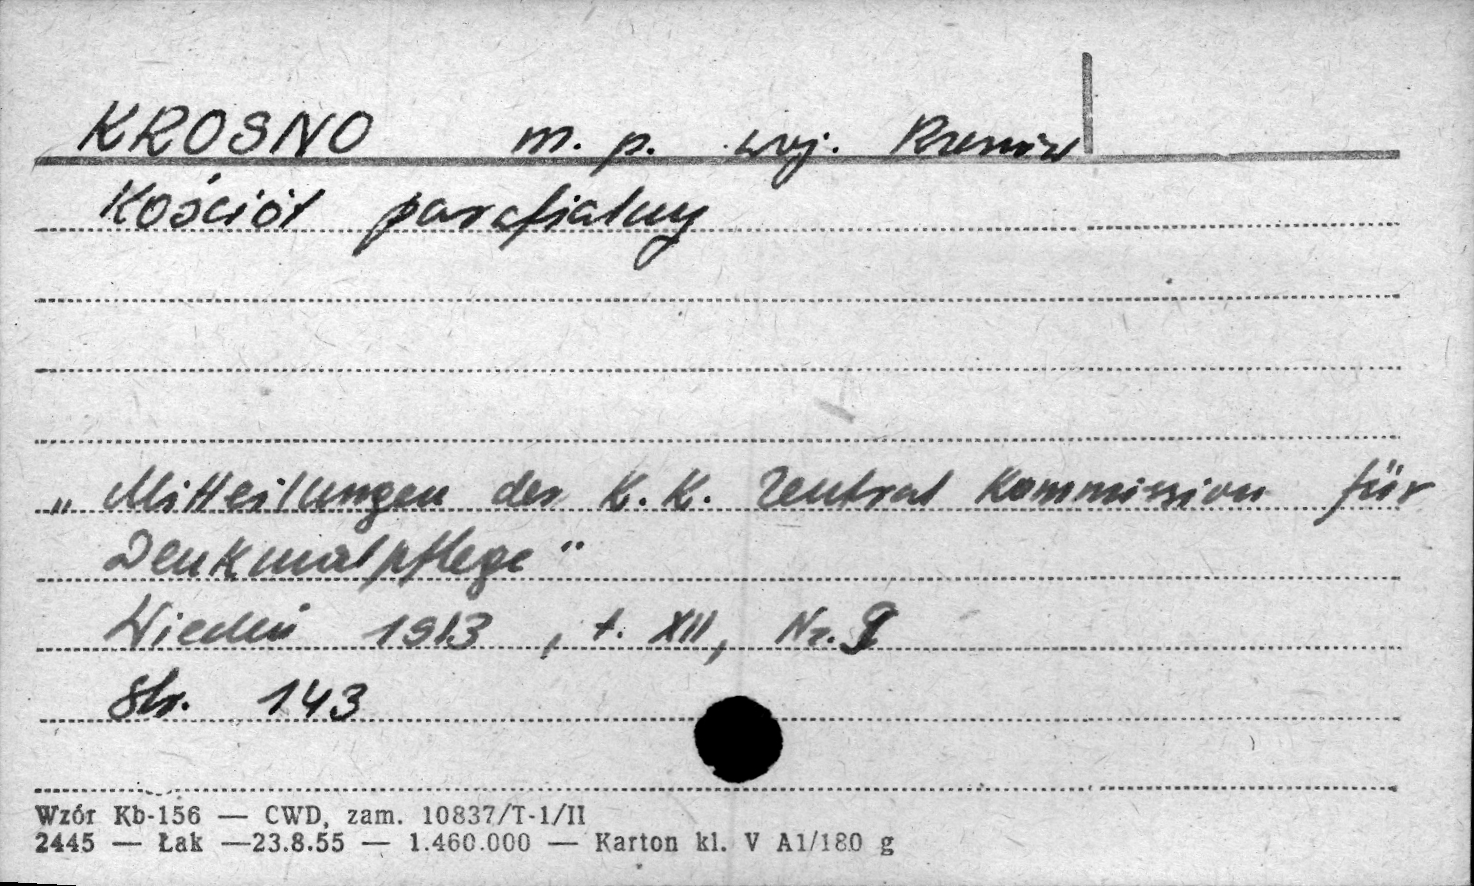 KROSNO m. p. woj. Rzeszów
Kościół parafialny
„Mitteilungen der K.K. Zentral Kommission für
Denkmalpflege"
Wiedeń 1913, t. XII, Nr. 9
Str. 143
Wzór Kb-156 — CWD, zam. 10837/T-1/II
2445 — Łak —23.8.55 — 1.460.000 — Karton kl. V A1/180 g